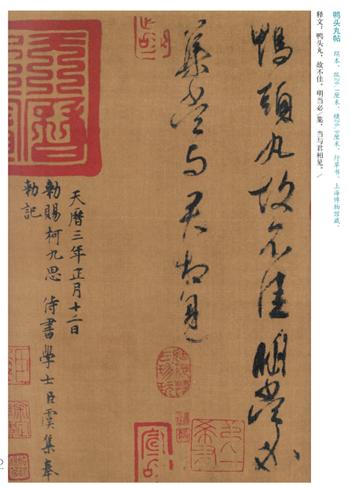 鸭头丸帖
绢本，纵26.1厘米，横26.9厘米，行草书，上海博物馆藏。
释文：鸭头丸，故不佳。明当必／集，当与君相见。／
鴨頭丸故不佳明當必
集當与君相見
天曆三年正月十二日
勑賜柯九思 侍書學士臣虞集奉
勑記